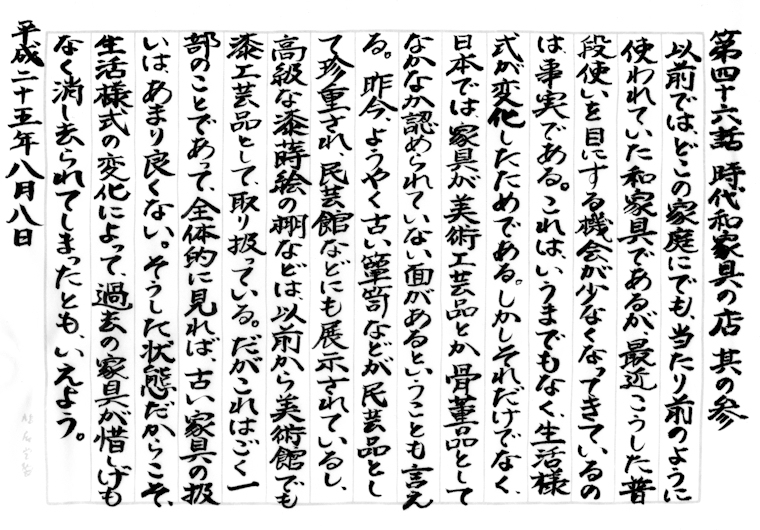 第四十六話 時代和家具の店 其の参
以前では、どこの家庭にでも、当たり前のように
使われていた和家具であるが、最近こうした普
段使いを目にする機会が少なくなってきているの
は、事実である。これは、いうまでもなく、生活様
式が変化したためである。しかしそれだけでなく、
日本では家具が美術工芸品とか骨董品として
なかなか認められていない面があるということも言え
る。昨今、ようやく古い簞笥などが民芸品とし
て珍重され、民芸館などにも展示されているし、
高級な漆蒔絵の棚などは、以前から美術館でも
漆工芸品として、取り扱っている。だがこれはごく一
部のことであって、全体的に見れば、古い家具の扱
いはあまり良くない。そうした状態だからこそ、
生活様式の変化によって、過去の家具が惜しげも
なく消し去られてしまったとも、いえよう。
平成二十五年八月八日